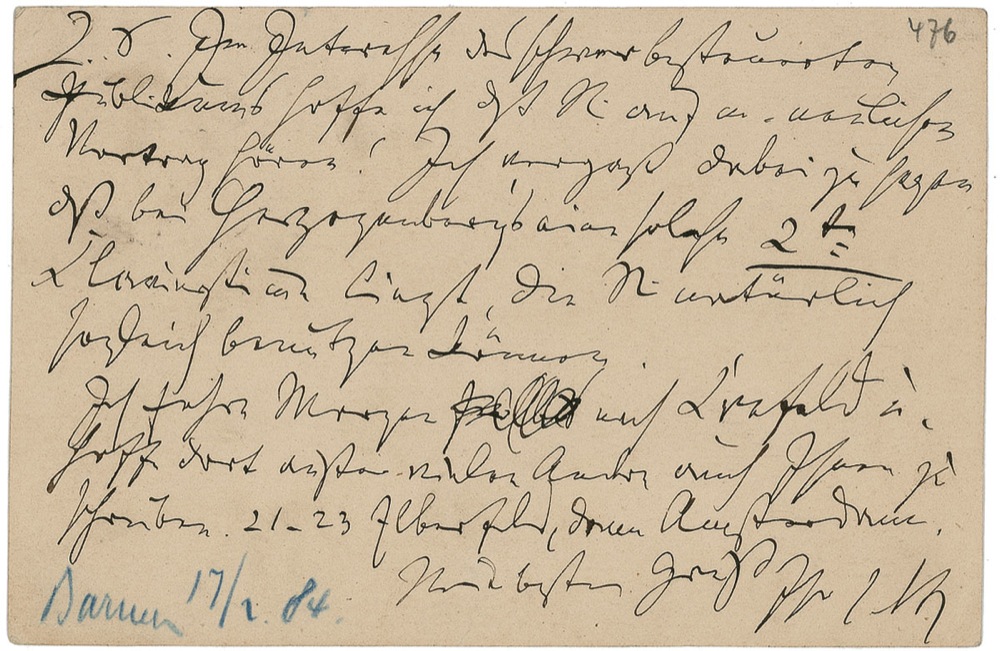 476
L. S. Im Interesse des schwerbesteuerten
Publikums hoffe ich dß Sie auch einen
Vortrag hören! Ich vergaß dabei zu sagen
dß bei Herzogenbergs eine solche 2te
Clavierstimme liegt, die Sie natürlich
sogleich benutzen können.
Ich fahre Morgen nach Krefeld u.
hoffe dort außer vielen Andern auch Ihnen zu
schreiben. 21-23 Elberfeld, dann Amsterdam.
Mit besten Gruß Ihr
Barmen 17/1. 84.